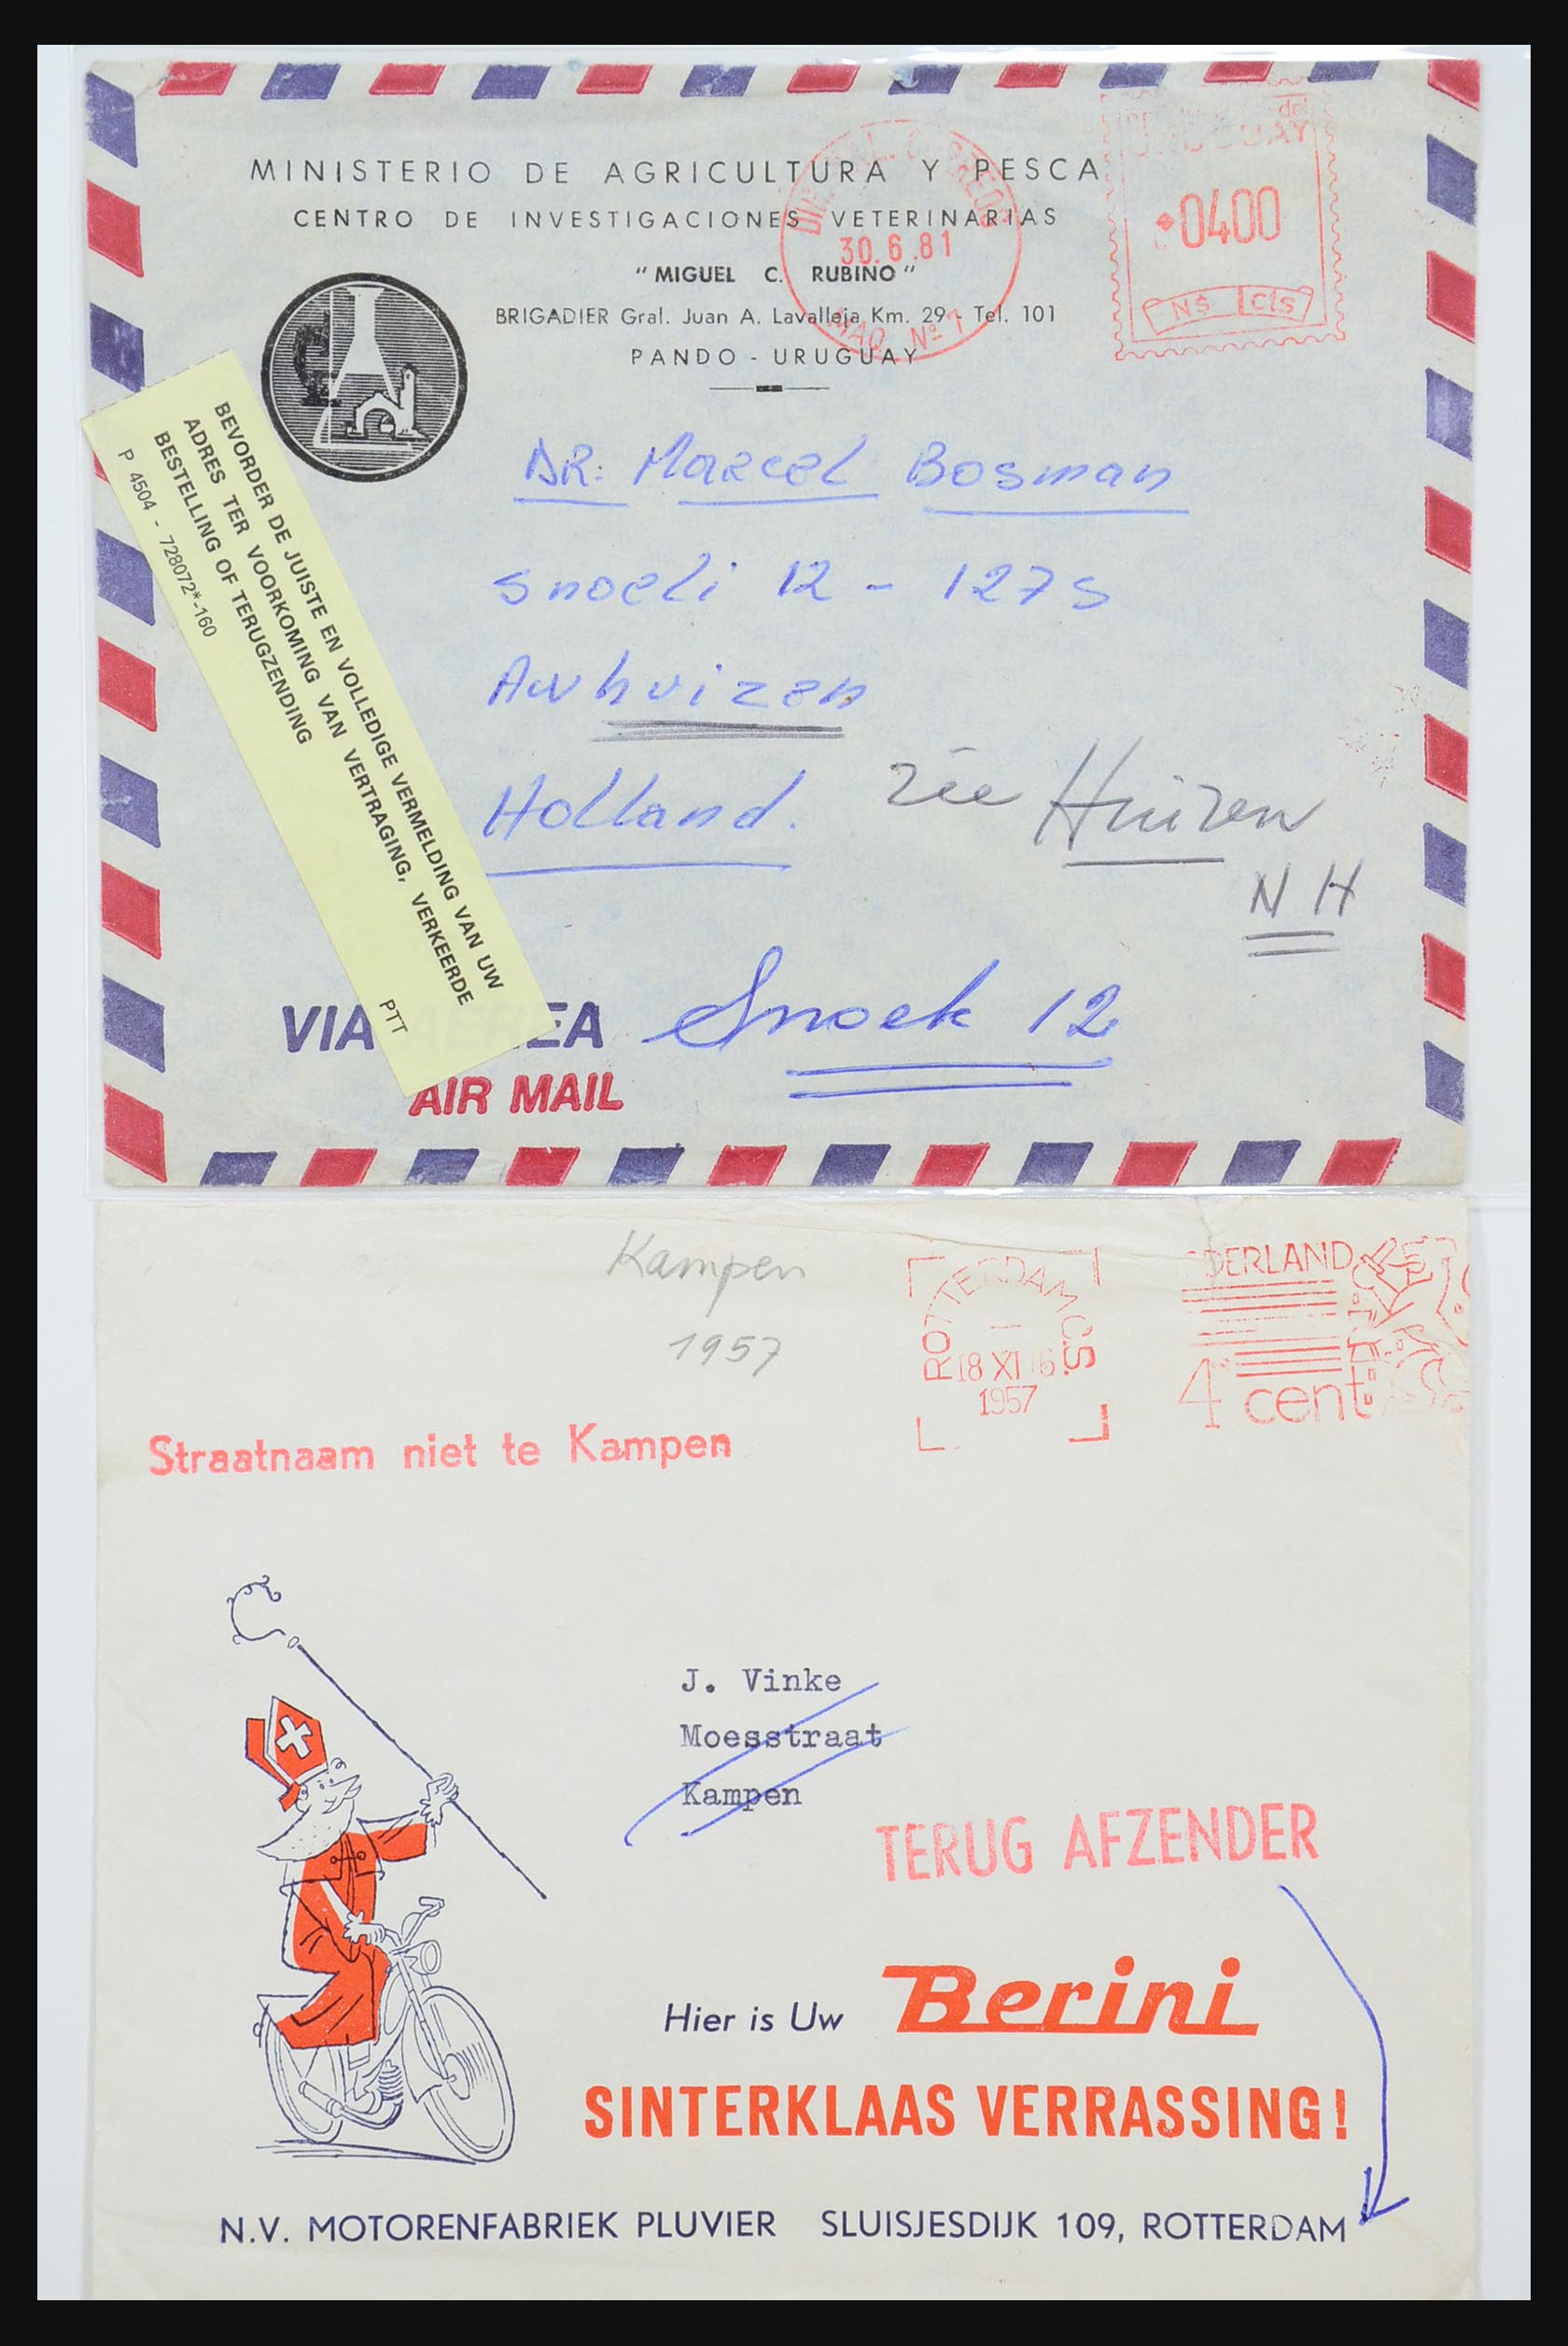 MINISTERIO DE AGRICULTURA Y PESCA
CENTRO DE INVESTIGACIONES VETERINARIAS
"MIGUEL C. RUBINO"
BRIGADIER Gral. Juan A. Lavalleja Km. 29 - Tel. 101
PANDO - URUGUAY
30.6.81
MAQ. Nº 1
del
URUGUAY
0400
N$ cts
BEVORDER DE JUISTE EN VOLLEDIGE VERMELDING VAN UW
ADRES TER VOORKOMING VAN VERTRAGING, VERKEERDE
BESTELLING OF TERUGZENDING
P 4504 - 728072*-160
PTT
DR: Marcel Bosman
snoeli 12 - 1275
Awhuizen
Holland.
zie Huizen
NH
VIA EA
AIR MAIL
Snoek 12
Kampen
1957
ROTTERDAM C.S.
18 XI 6
1957
DERLAND
4 cent
Straatnaam niet te Kampen
J. Vinke
Moesstraat
Kampen
TERUG AFZENDER
Hier is Uw Berini
SINTERKLAAS VERRASSING!
N.V. MOTORENFABRIEK PLUVIER SLUISJESDIJK 109, ROTTERDAM